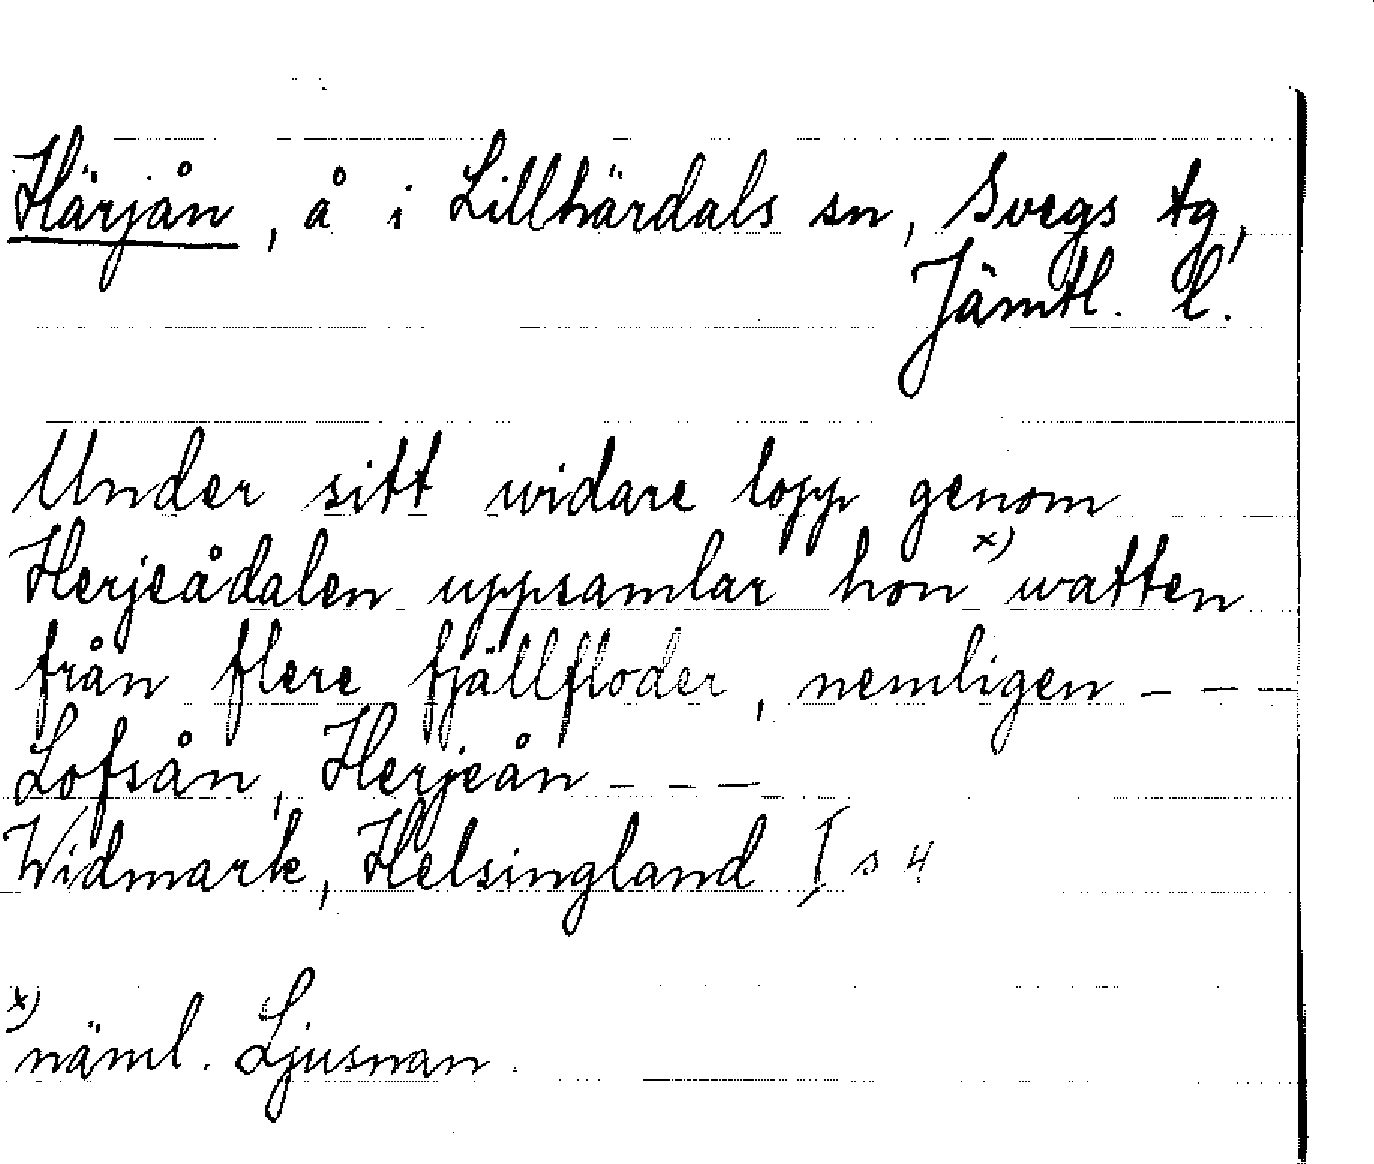 Härjån, å i Lillhärdals sn, Svegs tg,
Jämtl. l.
Under sitt widare lopp genom
Herjeådalen uppsamlar hon x) watten
från flere fjällfloder, nemligen - - -
Lofsån, Herjeån - - -
Widmark, Helsingland I s 4
x) näml. Ljusnan.